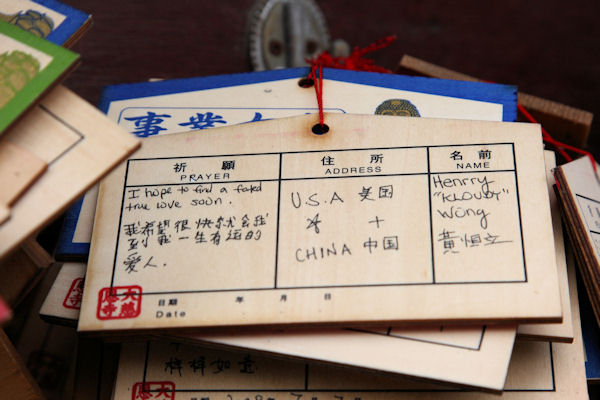 事業
祈願
PRAYER
住所
ADDRESS
名前
NAME
I hope to find a fated
true love soon.
我希望很快就会找
到我一生有运的
爱人.
U.S.A 美国
+
CHINA 中国
Henrry
"KLOUDY"
Wong
黄恒立
日期 年 月 日
Date